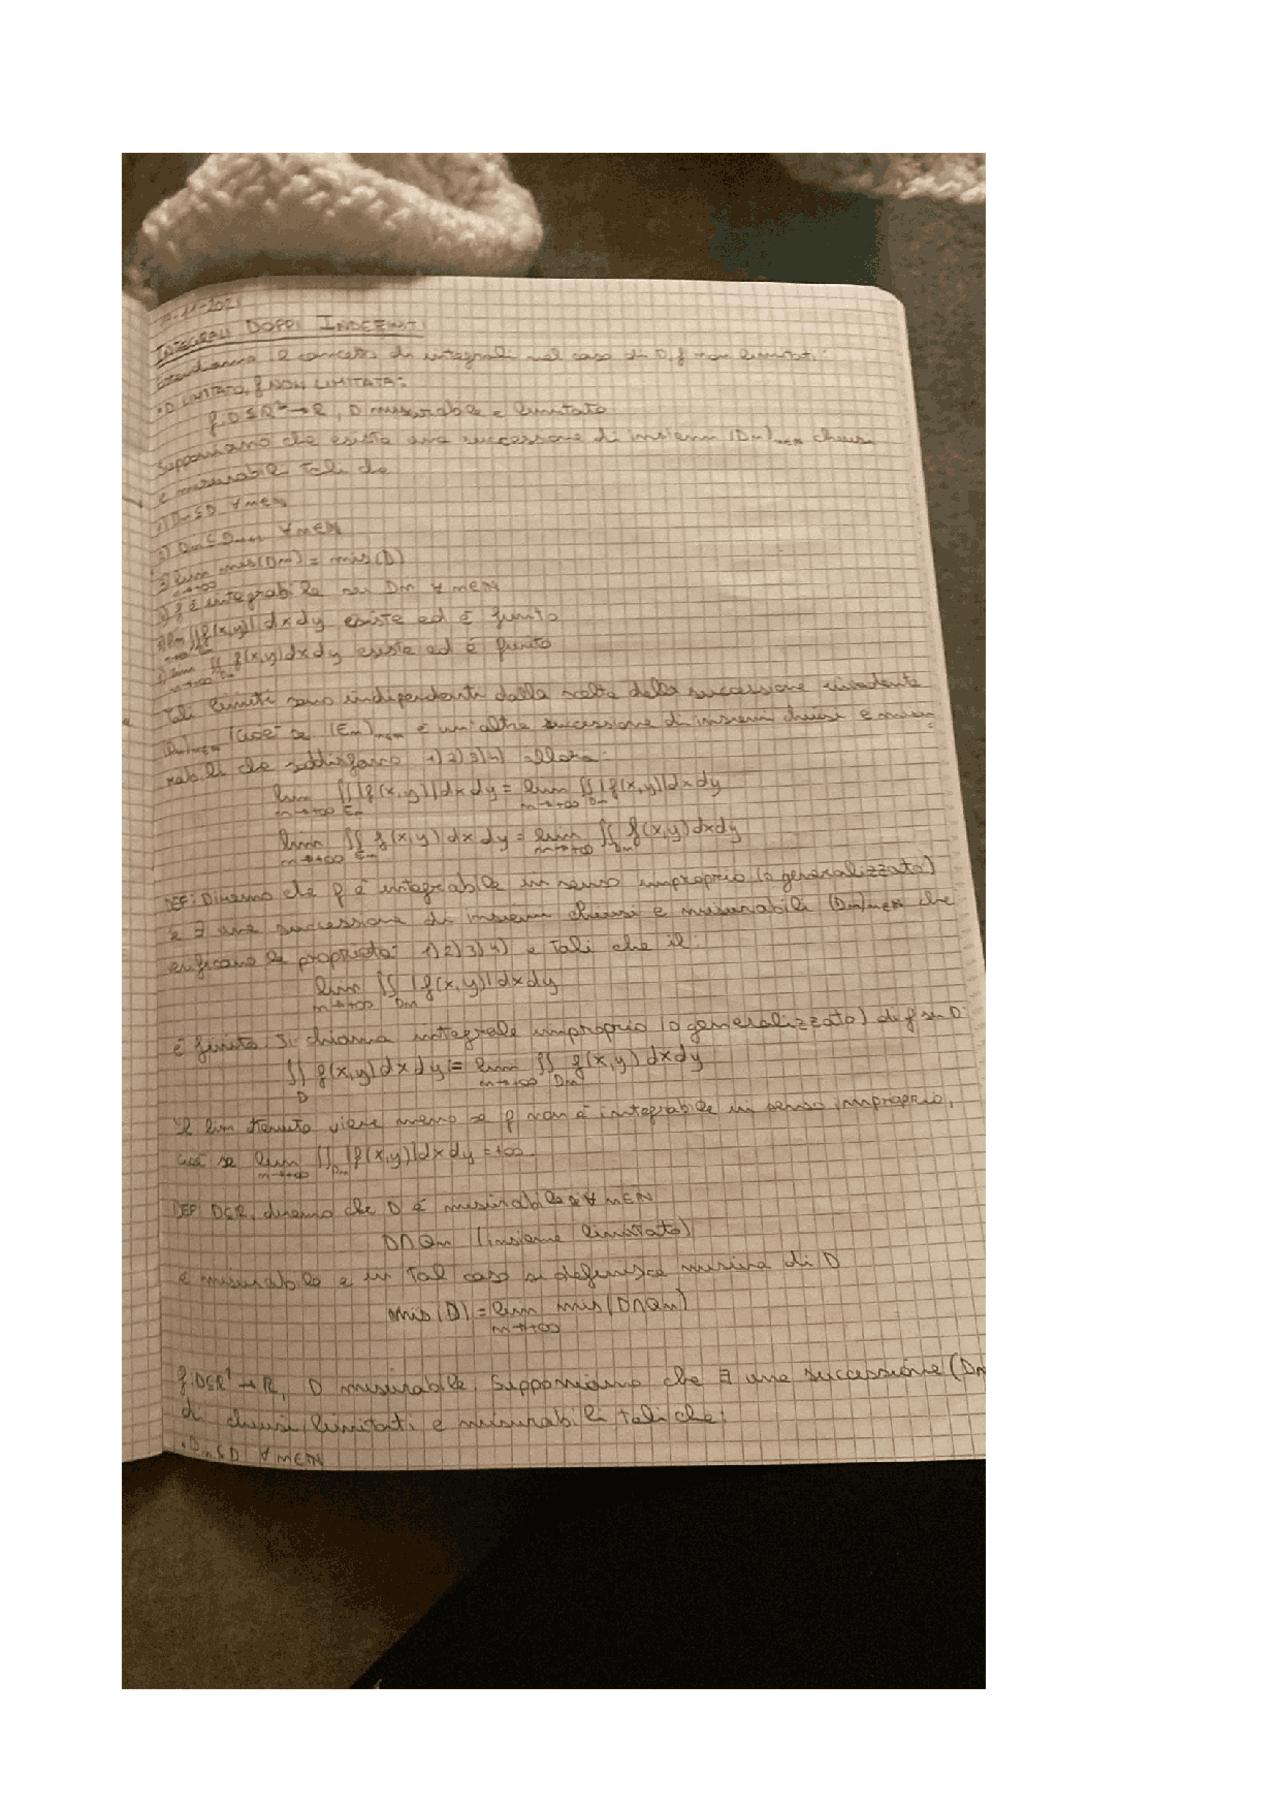 -11-2021
INTEGRALI DOPPI INDEFINITI
Estendiamo il concetto di integrali nel caso di D, f non limitati:
•D LIMITATO, f NON LIMITATA:
f: D⊆R²→R, D misurabile e limitato
Supponiamo che esista una successione di insiemi (Dn)n∈N chiusi
e misurabili tali che
1) Dn⊆D ∀n∈N
2) Dn⊆Dn+1 ∀n∈N
3) lim n→+∞ mis(Dn) = mis(D)
4) f è integrabile su Dn ∀n∈N
lim n→+∞ ∬Dn |f(x,y)| dxdy esiste ed è finito
lim n→+∞ ∬Dn f(x,y)dxdy esiste ed è finito
Tali limiti sono indipendenti dalla scelta della successione invadente
(Dn)n∈N (cioè se (En)n∈N è un'altra successione di insiemi chiusi e misu
rabili che soddisfano 1) 2) 3) 4) allora:
lim n→+∞ ∬En |f(x,y)| dx dy = lim n→+∞ ∬Dn |f(x,y)| dx dy
lim n→+∞ ∬En f(x,y) dx dy = lim n→+∞ ∬Dn f(x,y) dxdy
DEF: Diremo che f è integrabile in senso improprio (o generalizzato)
se ∃ una successione di insiemi chiusi e misurabili (Dn)n∈N che
verificano le proprietà 1) 2) 3) 4) e tali che il:
lim n→+∞ ∬Dn |f(x,y)| dxdy
è finito. Si chiama integrale improprio (o generalizzato) di f su D:
∬D f(x,y) dx dy := lim n→+∞ ∬Dn f(x,y) dxdy
Il lim viene meno se f non è integrabile in senso improprio,
cioè se lim n→+∞ ∬Dn |f(x,y)| dx dy = +∞.
DEF: D⊆R, diremo che D è misurabile se ∀n∈N
D∩Qn (insieme limitato)
è misurabile e in tal caso si definisce misura di D
mis(D) = lim n→+∞ mis(D∩Qn)
f: D⊆R²→R, D misurabile. Supponiamo che ∃ una successione (Dn
di chiusi, limitati e misurabili tali che:
•Dn⊆D ∀n∈N